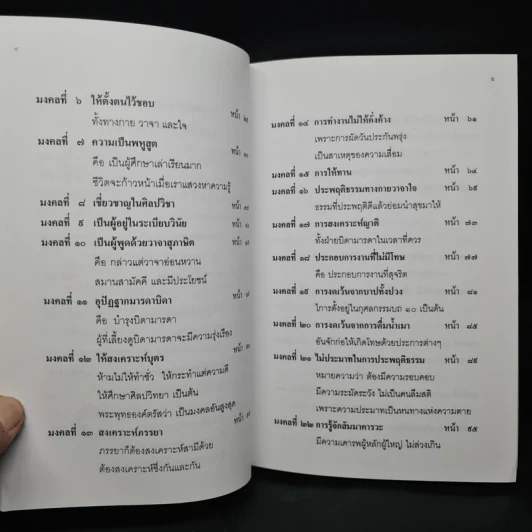 มงคลที่ ๖ ให้ตั้งตนไว้ชอบ หน้า
ทั้งทางกาย วาจา และใจ
มงคลที่ ๗ ความเป็นพหูสูต หน้า
คือ เป็นผู้ศึกษาเล่าเรียนมาก
ชีวิตจะก้าวหน้าเมื่อเราแสวงหาความรู้
มงคลที่ ๘ เชี่ยวชาญในศิลปวิชา หน้า
มงคลที่ ๙ เป็นผู้อยู่ในระเบียบวินัย หน้า
มงคลที่ ๑๐ เป็นผู้พูดด้วยวาจาสุภาษิต หน้า
คือ กล่าวแต่วาจาอ่อนหวาน
สมานสามัคคี และมีประโยชน์
มงคลที่ ๑๑ อุปัฏฐากมารดาบิดา หน้า
คือ บำรุงบิดามารดา
ผู้ที่เลี้ยงดูบิดามารดาจะมีความรุ่งเรือง
มงคลที่ ๑๒ ให้สงเคราะห์บุตร หน้า
ห้ามไม่ให้ทำชั่ว ให้กระทำแต่ความดี
ให้ศึกษาศิลปวิทยา เป็นต้น
พระพุทธองค์ตรัสว่า เป็นมงคลอันสูงสุด
มงคลที่ ๑๓ สงเคราะห์ภรรยา หน้า
ภรรยาก็ต้องสงเคราะห์สามีด้วย
ต้องสงเคราะห์ซึ่งกันและกัน
มงคลที่ ๑๔ การทำงานไม่ให้คั่งค้าง หน้า ๖๑
เพราะการผัดวันประกันพรุ่ง
เป็นสาเหตุของความเสื่อม
มงคลที่ ๑๕ การให้ทาน หน้า ๖๔
มงคลที่ ๑๖ ประพฤติธรรมทางกายวาจาใจ หน้า ๖๕
ธรรมที่ประพฤติดีแล้วย่อมนำสุขมาให้
มงคลที่ ๑๗ การสงเคราะห์ญาติ หน้า ๗๓
ทั้งฝ่ายบิดามารดาในเวลาที่ควร
มงคลที่ ๑๘ ประกอบการงานที่ไม่มีโทษ หน้า ๗๗
คือ ประกอบการงานที่สุจริต
มงคลที่ ๑๙ การงดเว้นจากบาปทั้งปวง หน้า ๘๑
ตั้งอยู่ในกุศลกรรมบถ ๑๐ เป็นต้น
มงคลที่ ๒๐ การงดเว้นจากการดื่มน้ำเมา หน้า ๘๕
อันจักก่อให้เกิดโทษด้วยประการต่างๆ
มงคลที่ ๒๑ ไม่ประมาทในการประพฤติธรรม หน้า ๘๙
หมายความว่า ต้องมีความรอบคอบ
มีความระมัดระวัง ไม่เป็นคนลืมสติ
เพราะความประมาทเป็นหนทางแห่งความตาย
มงคลที่ ๒๒ การรู้จักสัมมาคารวะ หน้า ๙๕
มีความเคารพผู้หลักผู้ใหญ่ ไม่ล่วงเกิน